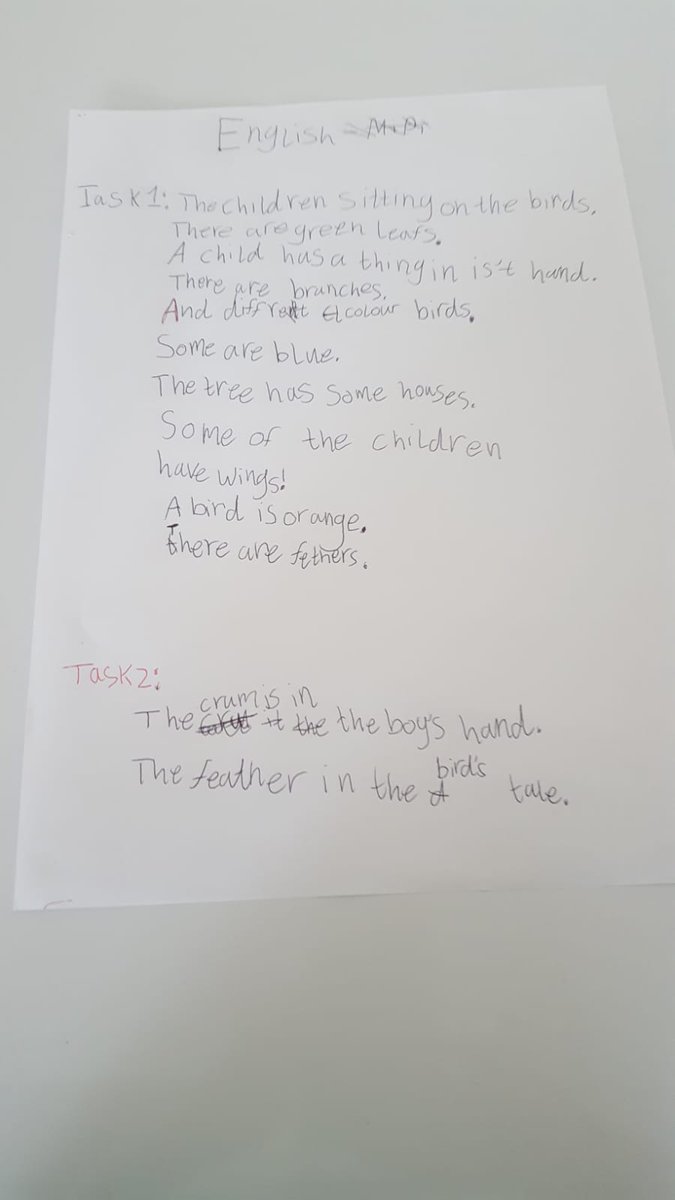 English
Task1: The children sitting on the birds.
There are green leafs.
A child has a thing in is't hand.
There are brunches.
And diffrent colour birds.
Some are blue.
The tree has some houses.
Some of the children
have wings!
A bird is orange.
There are fethers.
Task2:
crum is in
The the boy's hand.
bird's
The feather in the tale.